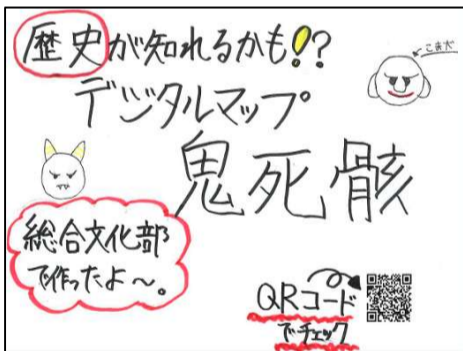 歴史が知れるかも!?
こま犬
デジタルマップ
鬼死骸
総合文化部
で作ったよ〜。
QRコード
でチェック